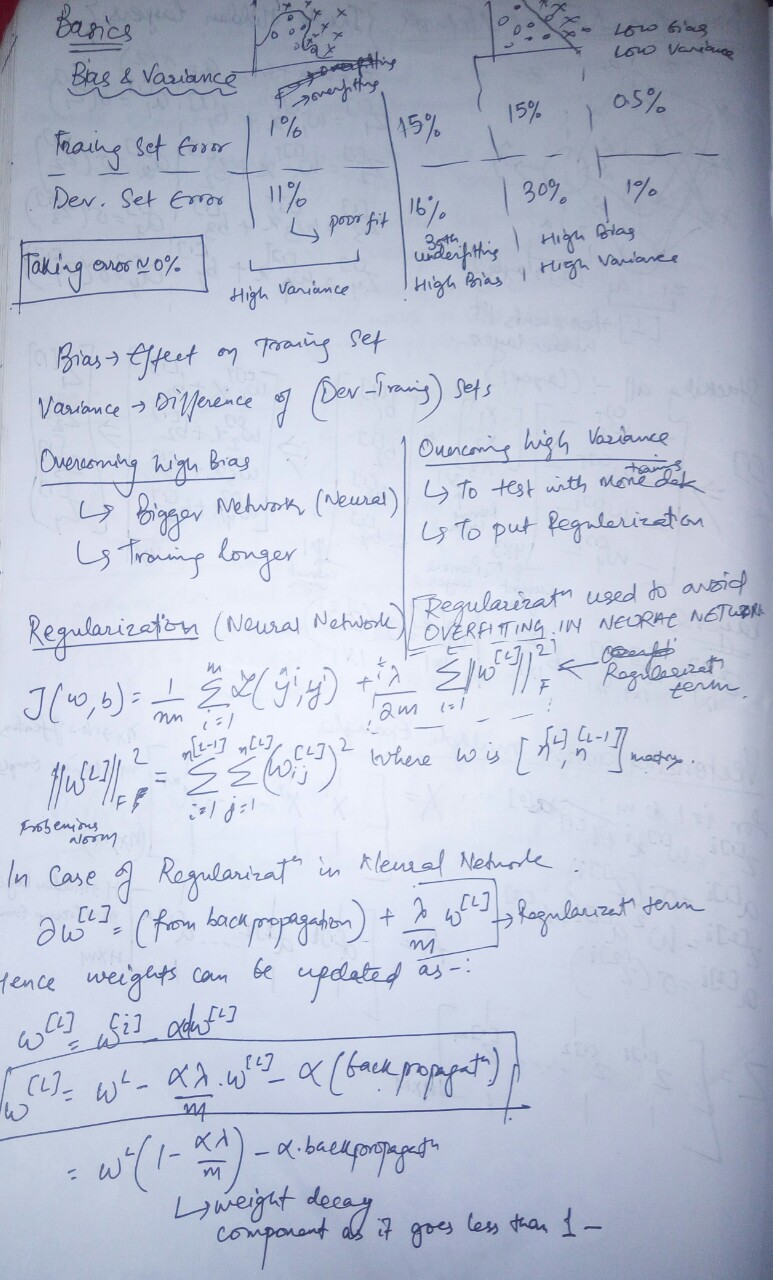 Basics
Bias & Variance
→ overfitting
Low Bias
Low Variance
Traing Set Error 1% 15% 15% 0.5%
Dev. Set Error 11% 16% 30% 1%
↳ poor fit
underfitting
High Bias
High Bias
High Variance
Taking error ≈ 0%
High Variance
Bias → Effect on Traing Set
Variance → Difference of (Dev-Traing) Sets
Overcoming high Bias
↳ Bigger Network (Neural)
↳ Traing longer
Overcoming high Variance
↳ To test with more traing data
↳ To put Regularization
Regularization (Neural Network)
Regularizatⁿ used to avoid
OVERFITTING IN NEURAL NETWORK
J(w,b) = 1/m Σ_{i=1}^{m} L(ŷ^i, y^i) + λ/2m Σ_{i=1}^{L} ||w^[L]||²_F ← Regularizatⁿ term.
||w^[L]||²_F = Σ_{i=1}^{n^[L-1]} Σ_{j=1}^{n^[L]} (w_ij^[L])² where w is [n^[L], n^[L-1]] matrx.
Frobenious Norm
In Case of Regularizatⁿ in Neural Network.
∂w^[L] = (from backpropagation) + λ/m w^[L] → Regularizatⁿ term
Hence weights can be updated as -:
w^[L] = w^[i] - αdw^[L]
w^[L] = w^L - αλ/m . w^[L] - α (backpropagatⁿ)
= w^L (1 - αλ/m) - α.backpropagatⁿ
↳ weight decay
component as it goes less than 1 -